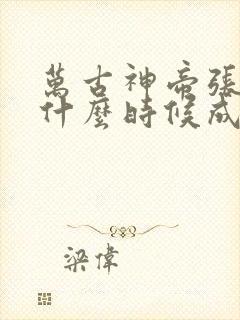 萬古神帝張
什麼時候成
梁偉